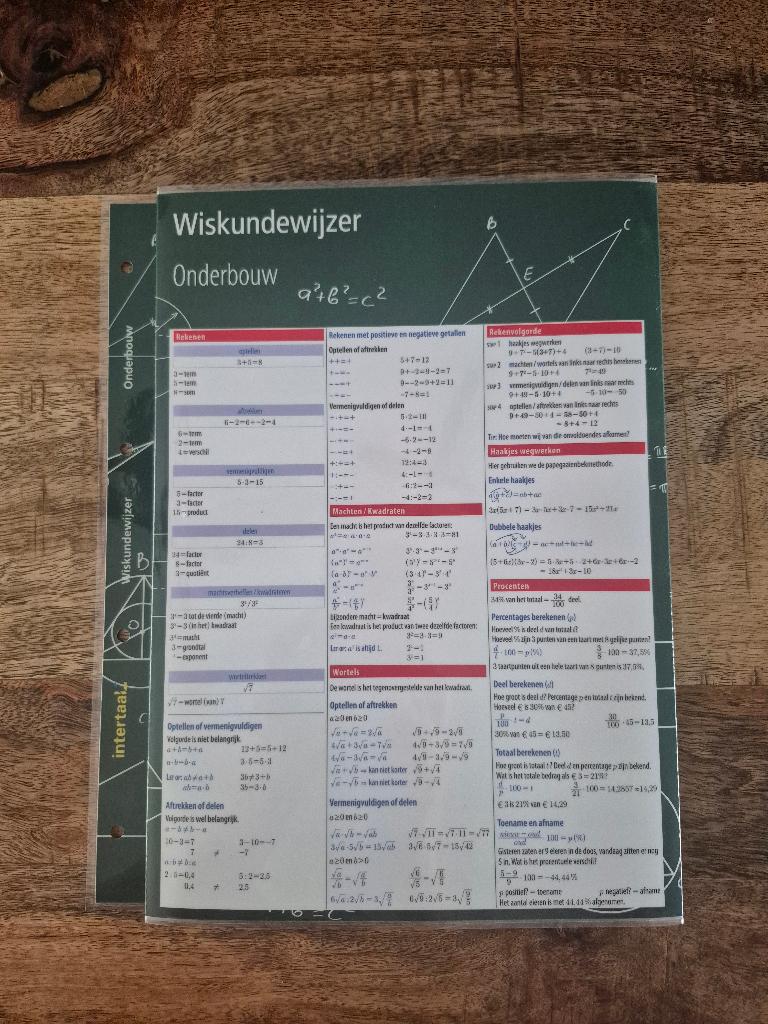 Wiskundewijzer
Onderbouw
a²+b²=c²
B
C
E
Onderbouw
Wiskundewijzer
intertaal
Rekenen
optellen
3+5=8
3=term
5=term
8=som
aftrekken
6−2=6+−2=4
6=term
2=term
4=verschil
vermenigvuldigen
5·3=15
5=factor
3=factor
15=product
delen
24:8=3
24=factor
8=factor
3=quotiënt
machtsverheffen/kwadrateren
3⁴/3²
3⁴=3 tot de vierde (macht)
3²=3 (in het) kwadraat
3⁴=macht
3=grondtal
⁴=exponent
worteltrekken
√7
√7=wortel (van) 7
Optellen of vermenigvuldigen
Volgorde is niet belangrijk.
a+b=b+a 12+5=5+12
a·b=b·a 3·5=5·3
Let op: ab≠a+b 3b≠3+b
ab=a·b 3b=3·b
Aftrekken of delen
Volgorde is wel belangrijk.
a−b≠b−a
10−3=7 3−10=−7
7 ≠ −7
a:b≠b:a
2:5=0,4 5:2=2,5
0,4 ≠ 2,5
Rekenen met positieve en negatieve getallen
Optellen of aftrekken
++=+ 5+7=12
+−=− 9+−2=9−2=7
−−=+ 9−−2=9+2=11
Vermenigvuldigen of delen
+·+=+ 5·2=10
+·−=− 4·−1=−4
−·+=− −6·2=−12
−·−=+ −4·−2=8
+:+=+ 12:4=3
+:−=− 4:−1=−4
−:+=− −6:2=−3
−:−=+ −4:−2=2
Machten / Kwadraten
Een macht is het product van dezelfde factoren:
a⁴=a·a·a·a 3⁴=3·3·3·3=81
bijzondere macht = kwadraat
Een kwadraat is het product van twee dezelfde factoren:
a²=a·a 3²=3·3=9
Let op: a⁰ is altijd 1. 2⁰=1
3⁰=1
Wortels
De wortel is het tegenovergestelde van het kwadraat.
Optellen of aftrekken
a≥0 en b≥0
√a+√a=2√a √9+√9=2√9
4√a+3√a=7√a 4√9+3√9=7√9
4√a−3√a=√a 4√9−3√9=√9
√a+√b ⇒ kan niet korter √9+√4
√a−√b ⇒ kan niet korter √9−√4
Vermenigvuldigen of delen
a≥0 en b≥0
√a·√b=√ab √7·√11=√7·11=√77
3√a·5√b=15√ab 3√6·5√7=15√42
a≥0 en b>0
√a/√b=√(a/b) √6/√5=√(6/5)
6√a:2√b=3√(a/b) 6√9:2√5=3√(9/5)
Rekenvolgorde
stap 1 haakjes wegwerken
9+7²−5(3+7)+4 (3+7)=10
stap 2 machten / wortels van links naar rechts berekenen
9+7²−5·10+4 7²=49
stap 3 vermenigvuldigen / delen van links naar rechts
9+49−5·10+4 −5·10=−50
stap 4 optellen / aftrekken van links naar rechts
9+49−50+4 = 58−50+4
= 8+4 = 12
Tip: Hoe moeten wij van die onvoldoendes afkomen?
Haakjes wegwerken
Hier gebruiken we de papegaaienbekmethode.
Enkele haakjes
a(b+c)=ab+ac
3x(5x+7) = 3x·5x+3x·7 = 15x²+21x
Dubbele haakjes
(a+b)(c+d) = ac+ad+bc+bd
Procenten
34% van het totaal = 34/100 deel.
Percentages berekenen (p)
Hoeveel % is deel d van totaal t?
Hoeveel % zijn 3 punten van een taart met 8 gelijke punten?
d/t·100=p(%) 3/8·100=37,5%
3 taartpunten uit een hele taart van 8 punten is 37,5%.
Deel berekenen (d)
Hoe groot is deel d? Percentage p en totaal t zijn bekend.
Hoeveel € is 30% van € 45?
p/100·t=d 30/100·45=13,5
30% van € 45 = € 13,50
Totaal berekenen (t)
Hoe groot is totaal t? Deel d en percentage p zijn bekend.
Wat is het totale bedrag als € 3 = 21%?
d/p·100=t 3/21·100=14,2857≈14,29
€ 3 is 21% van € 14,29
Toename en afname
nieuw−oud/oud·100=p(%)
Gisteren zaten er 9 eieren in de doos, vandaag zitten er nog
5 in. Wat is het procentuele verschil?
5−9/9·100=−44,44%
p positief? = toename p negatief? = afname
Het aantal eieren is met 44,44% afgenomen.